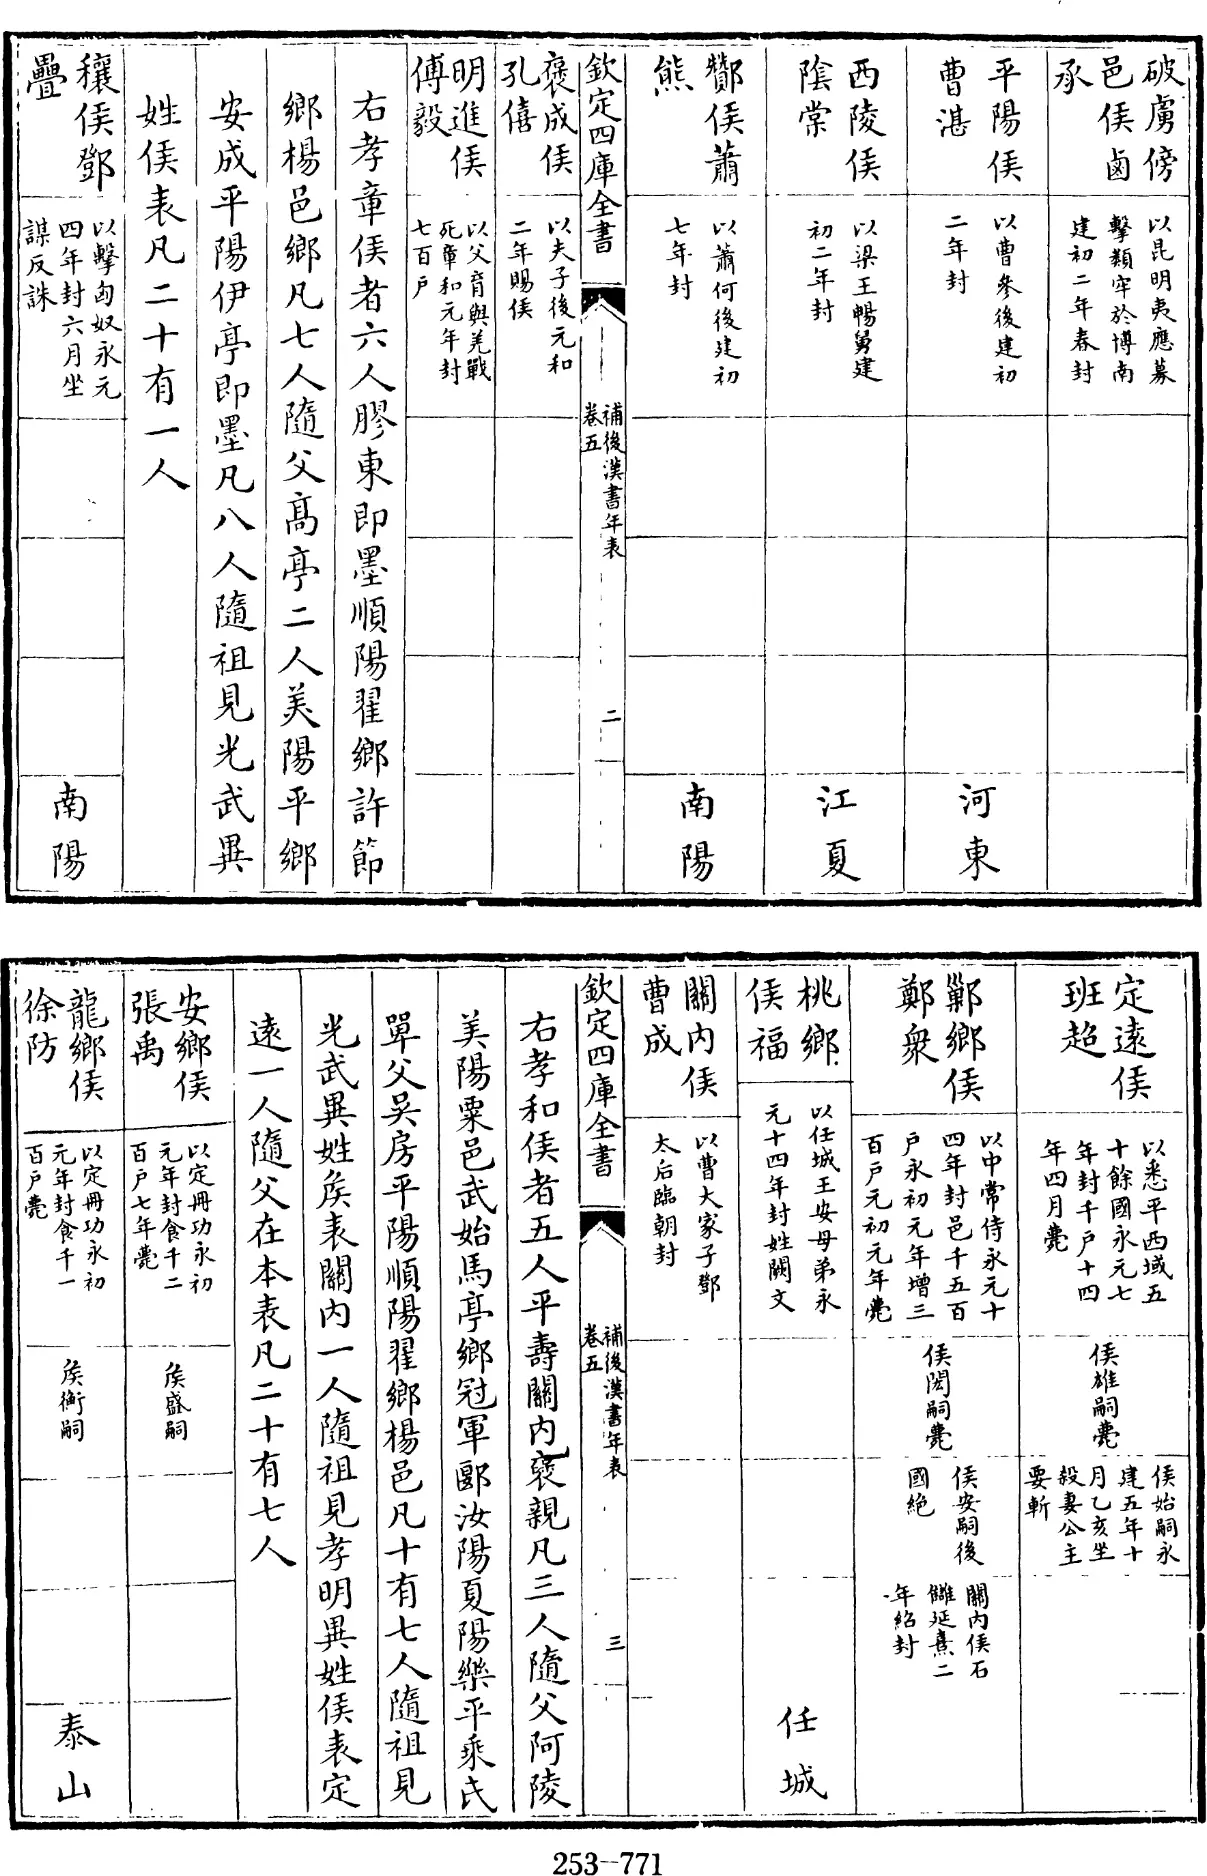 破虜傍
邑侯鹵
承
以昆明夷應募
擊類牢於博南
建初二年春封
平陽侯
曹湛
以曹參後建初
二年封
河東
西陵侯
陰棠
以梁王暢舅建
初二年封
江夏
酇侯蕭
熊
以蕭何後建初
七年封
南陽
欽定四庫全書
補後漢書年表
卷五
二
褒成侯
孔僖
以夫子後元和
二年賜侯
明進侯
傅毅
以父育與羌戰
死章和元年封
七百戸
右孝章侯者六人膠東即墨順陽翟鄉許節
鄉楊邑鄉凡七人隨父高亭二人美陽平鄉
安成平陽伊亭即墨凡八人隨祖見光武異
姓侯表凡二十有一人
穰侯鄧
疊
以擊匈奴永元
四年封六月坐
謀反誅
南陽
定遠侯
班超
以悉平西域五
十餘國永元七
年封千戸十四
年四月薨
侯雄嗣薨
侯始嗣永
建五年十
月乙亥坐
殺妻公主
要斬
鄛鄉侯
鄭衆
以中常侍永元十
四年封邑千五百
戸永初元年增三
百戸元初元年薨
侯閎嗣薨
侯安嗣後
國絶
關內侯石
讎延熹二
年紹封
桃鄉
侯福
以任城王安母弟永
元十四年封姓闕文
任城
關內侯
曹成
以曹大家子鄧
太后臨朝封
欽定四庫全書
補後漢書年表
卷五
三
右孝和侯者五人平壽關內襃親凡三人隨父阿陵
美陽粟邑武始馬亭鄉冠軍郾汝陽夏陽樂平乘氏
單父吳房平陽順陽翟鄉楊邑凡十有七人隨祖見
光武異姓侯表關內一人隨祖見孝明異姓侯表定
遠一人隨父在本表凡二十有七人
安鄉侯
張禹
以定冊功永初
元年封食千二
百戸七年薨
侯盛嗣
龍鄉侯
徐防
以定冊功永初
元年封食千一
百戸薨
侯衡嗣
泰山
253-771